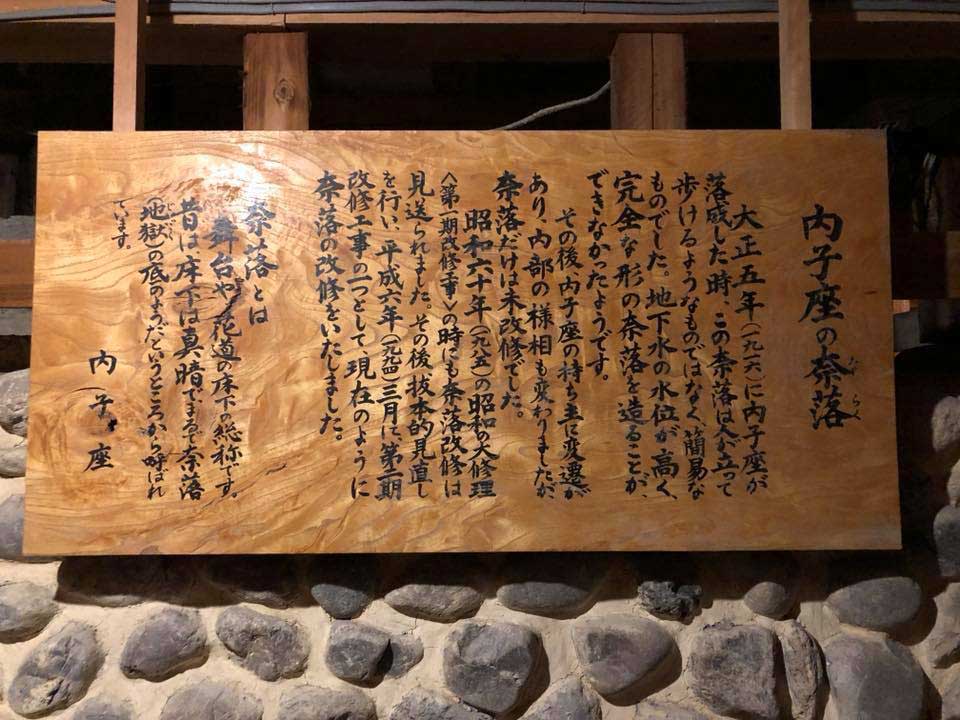 内子座の奈落
ならく
大正五年(一九一六)に内子座が
落成した時、この奈落は人が立って
歩けるようなものではなく、簡易な
ものでした。地下水の水位が高く、
完全な形の奈落を造ることが、
できなかったようです。
その後、内子座の持ち主で変遷が
あり、内部の様相も変わりましたが、
奈落だけは未改修でした。
昭和六十年(一九八五)の昭和の大修理
〈第一期改修工事〉の時にも奈落改修は
見送られました。その後抜本的見直し
を行い、平成六年(一九九四)三月に、第二期
改修工事の一つとして現在のように
奈落の改修をいたしました。
奈落とは
舞台や花道の床下の総称です。
昔は、床下は真暗でまるで奈落
(地獄)の底のようだというところから呼ばれ
じごく
ています。
内子座